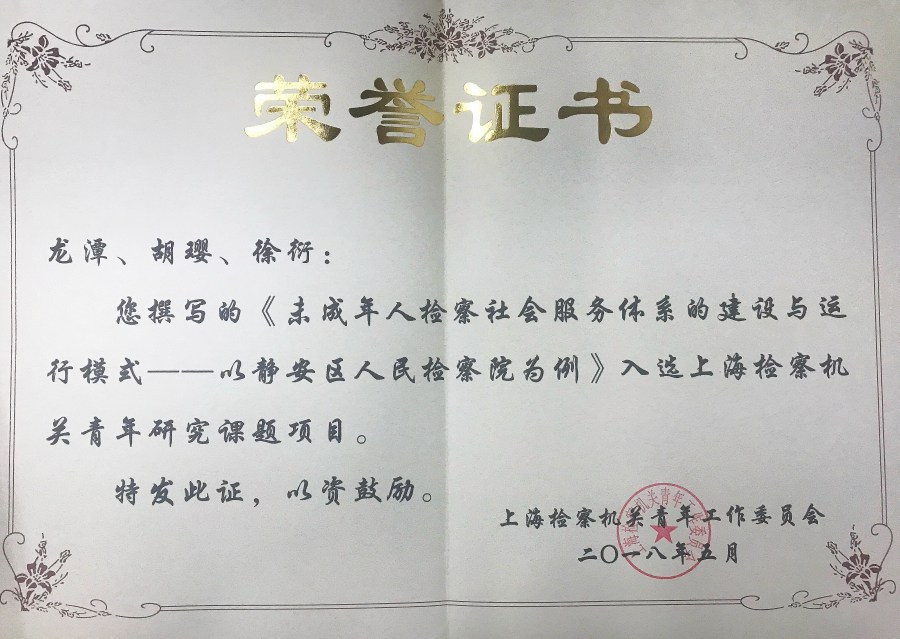 荣誉证书
龙潭、胡璎、徐衍：
您撰写的《未成年人检察社会服务体系的建设与运
行模式——以静安区人民检察院为例》入选上海检察机
关青年研究课题项目。
特发此证，以资鼓励。
上海检察机关青年工作委员会
二〇一八年五月